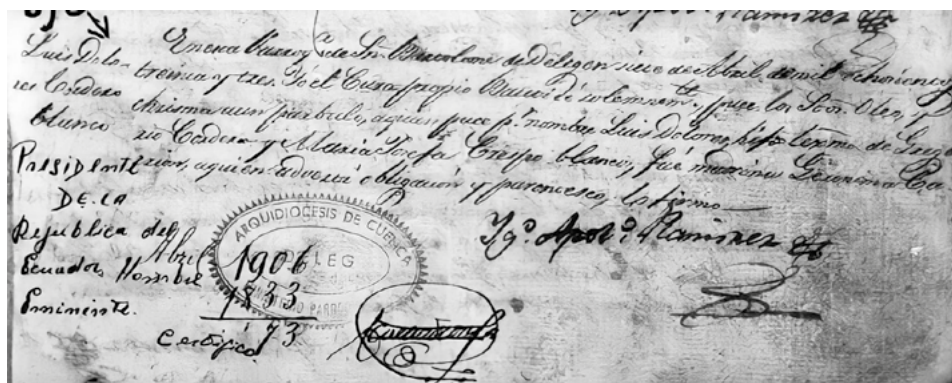 Ramirez
Luis Dolo-
res Cordero
blanco
Presidente
DE LA
República del
Ecuador Hombre
Eminente.
En esta Parroqª de Sn. Bartolome de Deleg en siete de Abril de mil ochocientos
treinta y tres. Yo el Cura propio Bauticé solemnemte. y puse los Stos. Oleo, y
chrisma a un parbulo, a quien puse pr. nombre Luis Dolores, hijo lexmo de Grego
rio Cordero y Maria Josefa Crespo blancos, fué madrina
a quien advertí obligación y parentesco, lo firmo
Ramirez
ARQUIDIOCESIS DE CUENCA
LEG
Abril
1906
1833
73
Certifico